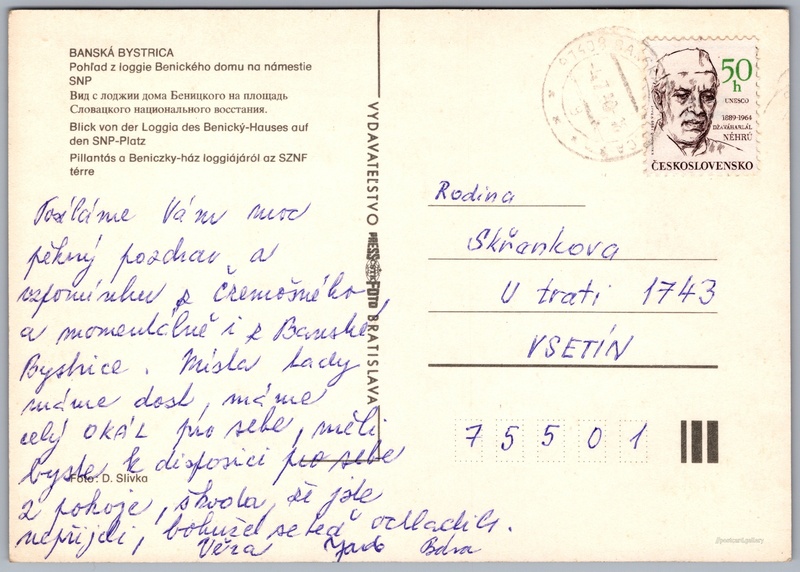 BANSKÁ BYSTRICA
Pohľad z loggie Benického domu na námestie
SNP
Вид с лоджии дома Беницкого на площадь
Словацкого национального восстания.
Blick von der Loggia des Benický-Hauses auf
den SNP-Platz
Pillantás a Beniczky-ház loggiájáról az SZNF
térre
Posíláme Vám moc
pěkný pozdrav a
vzpomínku z Čremošného,
a momentálně i z Banské
Bystrice. Místa tady
máme dost, máme
celý OKÁL pro sebe, měli
byste k disposici pro sebe
2 pokoje, škoda, že jste
nepřijeli, bohužel se teď odladili.
Věra Jarda
Foto: D. Slivka
VYDAVATEĽSTVO PRESSFOTO BRATISLAVA
50
h
UNESCO
1889-1964
DŽAVÁHARLÁL
NÉHRÚ
ČESKOSLOVENSKO
Rodina
Skřankova
U trati 1743
VSETÍN
75501
//postcard.gallery